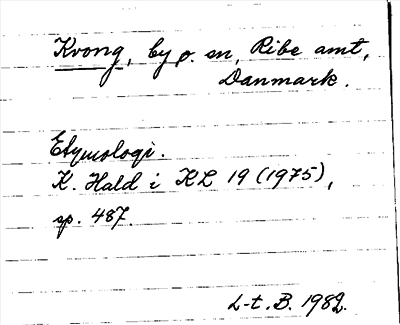 Kvong, by o. sn, Ribe amt,
Danmark.
Etymologi.
K. Hald i KL 19 (1975),
sp. 487.
L-t. B. 1982.